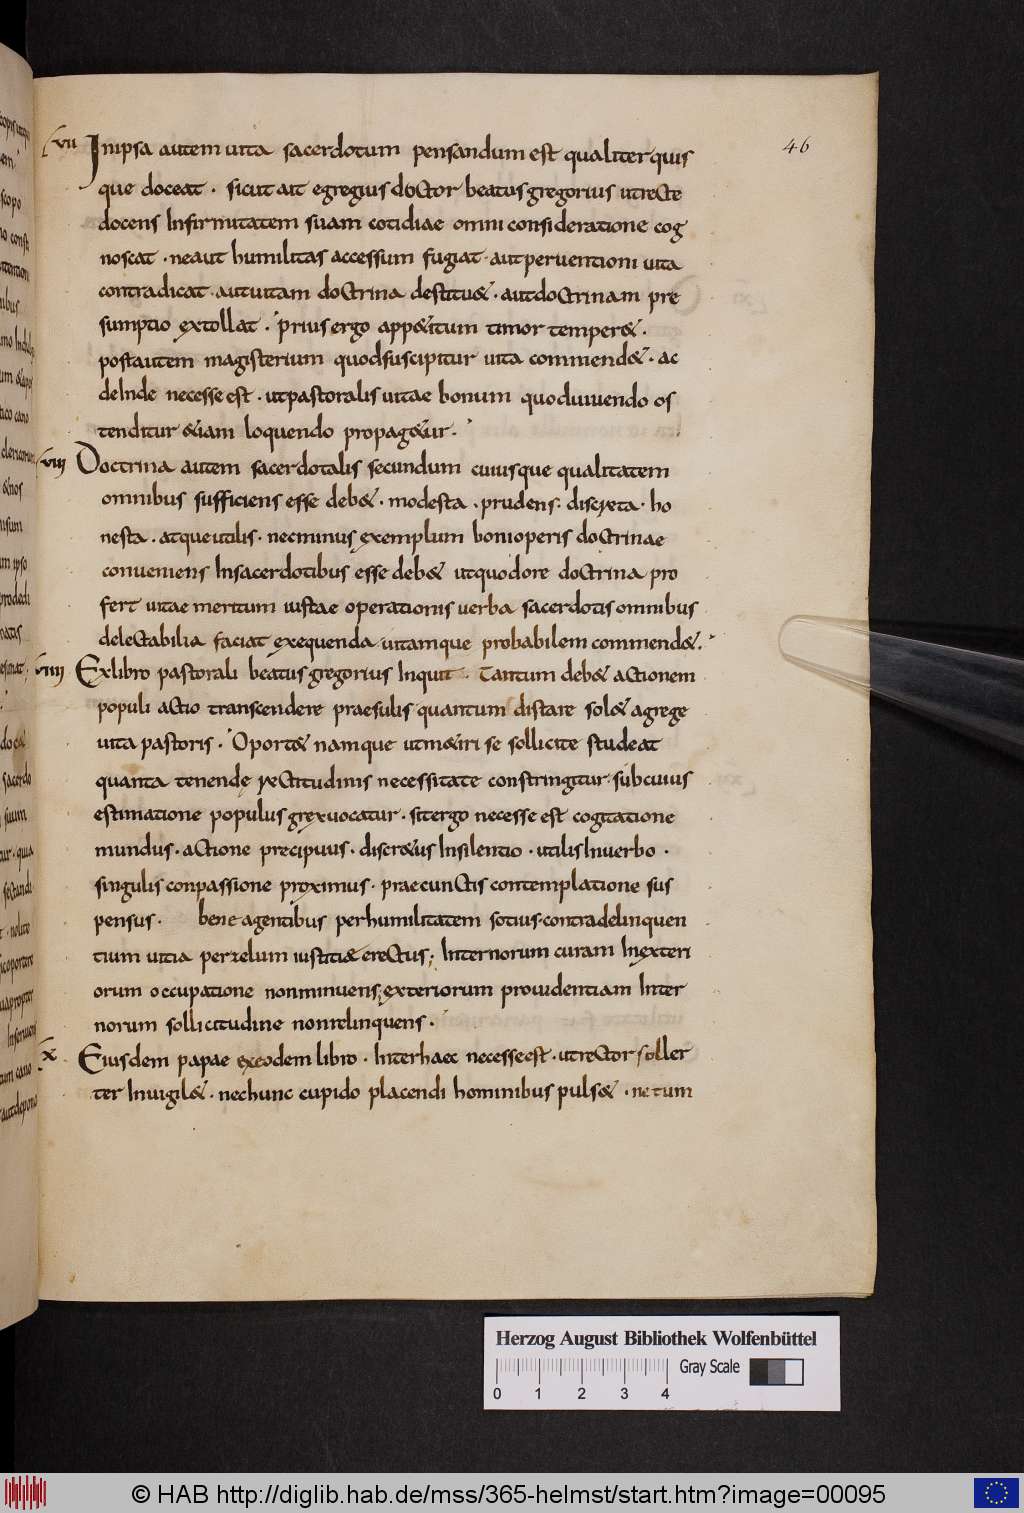 46
vii In ipsa autem uita sacerdotum pensandum est qualiter quis
que doceat · sicut ait egregius doctor beatus gregorius ut recte
docens Infirmitatem suam cotidiae omni consideratione cog
noscat · ne aut humilitas accessum fugiat · aut peruentioni uita
contradicat · aut uitam doctrina destitu& · aut doctrinam pre
sumptio extollat · prius ergo app&itum timor temper& ·
post autem magisterium quod suscipitur uita commend& · ac
deInde necesse est · ut pastoralis uitae bonum quod uiuendo os
tenditur &iam loquendo propag&ur ·
viii Doctrina autem sacerdotalis secundum cuiusque qualitatem
omnibus sufficiens esse deb& · modesta · prudens · discreta · ho
nesta · atque utilis · nec minus exemplum boni operis doctrinae
conueniens In sacerdotibus esse deb& ut quod ore doctrina pro
fert uitae meritum iustae operationis uerba sacerdotis omnibus
delectabilia faciat exequenda uitamque probabilem commend& ·
viiii Ex libro pastorali beatus gregorius Inquit · Tantum deb& actionem
populi actio transcendere praesulis quantum distare sol& a grege
uita pastoris · Oport& namque ut m&iri se sollicite studeat
quanta tenende rectitudinis necessitate constringitur · sub cuius
estimatione populus grex uocatur · sit ergo necesse est cogitatione
mundus · actione precipuus · discr&us In silentio · utilis In uerbo ·
singulis conpassione proximus · prae cunctis contemplatione sus
pensus · bene agentibus per humilitatem sotius · contra delinquen
tium uitia per zelum iustiti& erectus ; Internorum curam In exteri
orum occupatione non minuens ; exteriorum prouidentiam Inter
norum sollicitudine non relinquens ·
x Eiusdem papae ex eodem libro · Inter haec necesse est · ut rector soller
ter Inuigil& · nec hunc cupido placendi hominibus puls& · ne tum
Herzog August Bibliothek Wolfenbüttel
Gray Scale
0 1 2 3 4
© HAB http://diglib.hab.de/mss/365-helmst/start.htm?image=00095